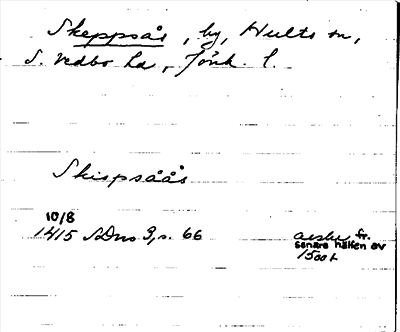 Skeppsås, by, Hults sn,
S. Vedbo hd, Jönk. l.
Skispsåås
10/8
1415 SDns 3, s. 66
avskr fr.
senare hälften av
1500 t